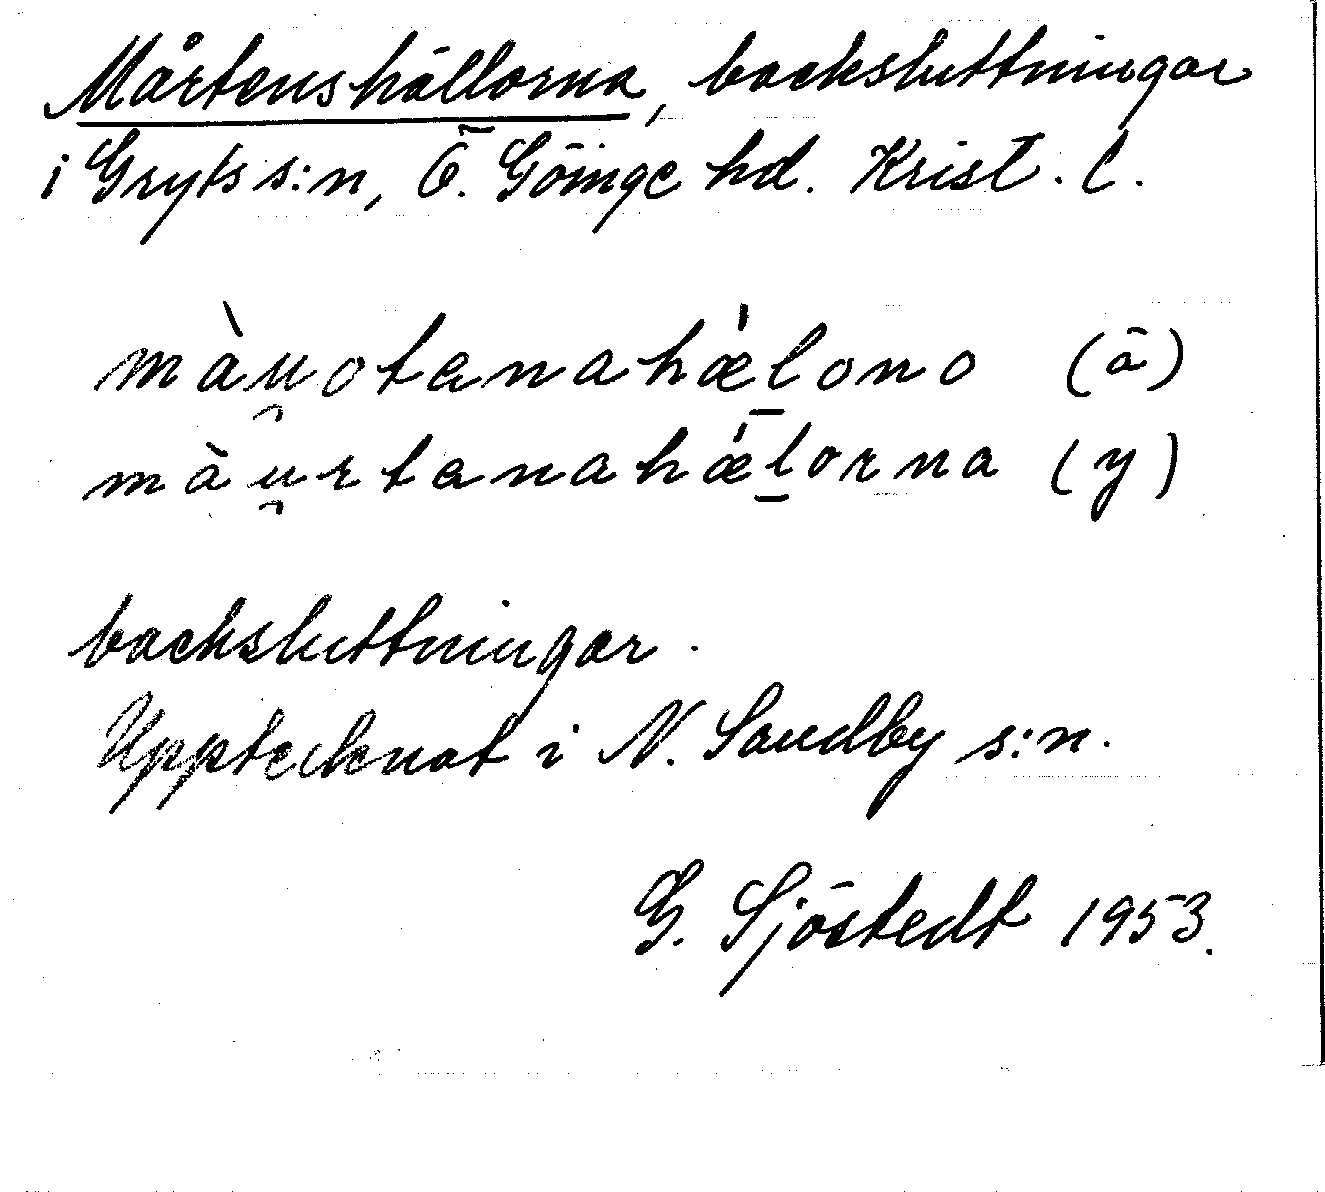 Mårtenshällorna, backsluttningar
i Gryts s:n, Ö. Göinge hd. Krist. l.
màu̯otenahǽlono (ä)
màu̯rtenahǽlorna (y)
backsluttningar.
Upptecknat i N. Sandby s:n.
G. Sjöstedt 1953.